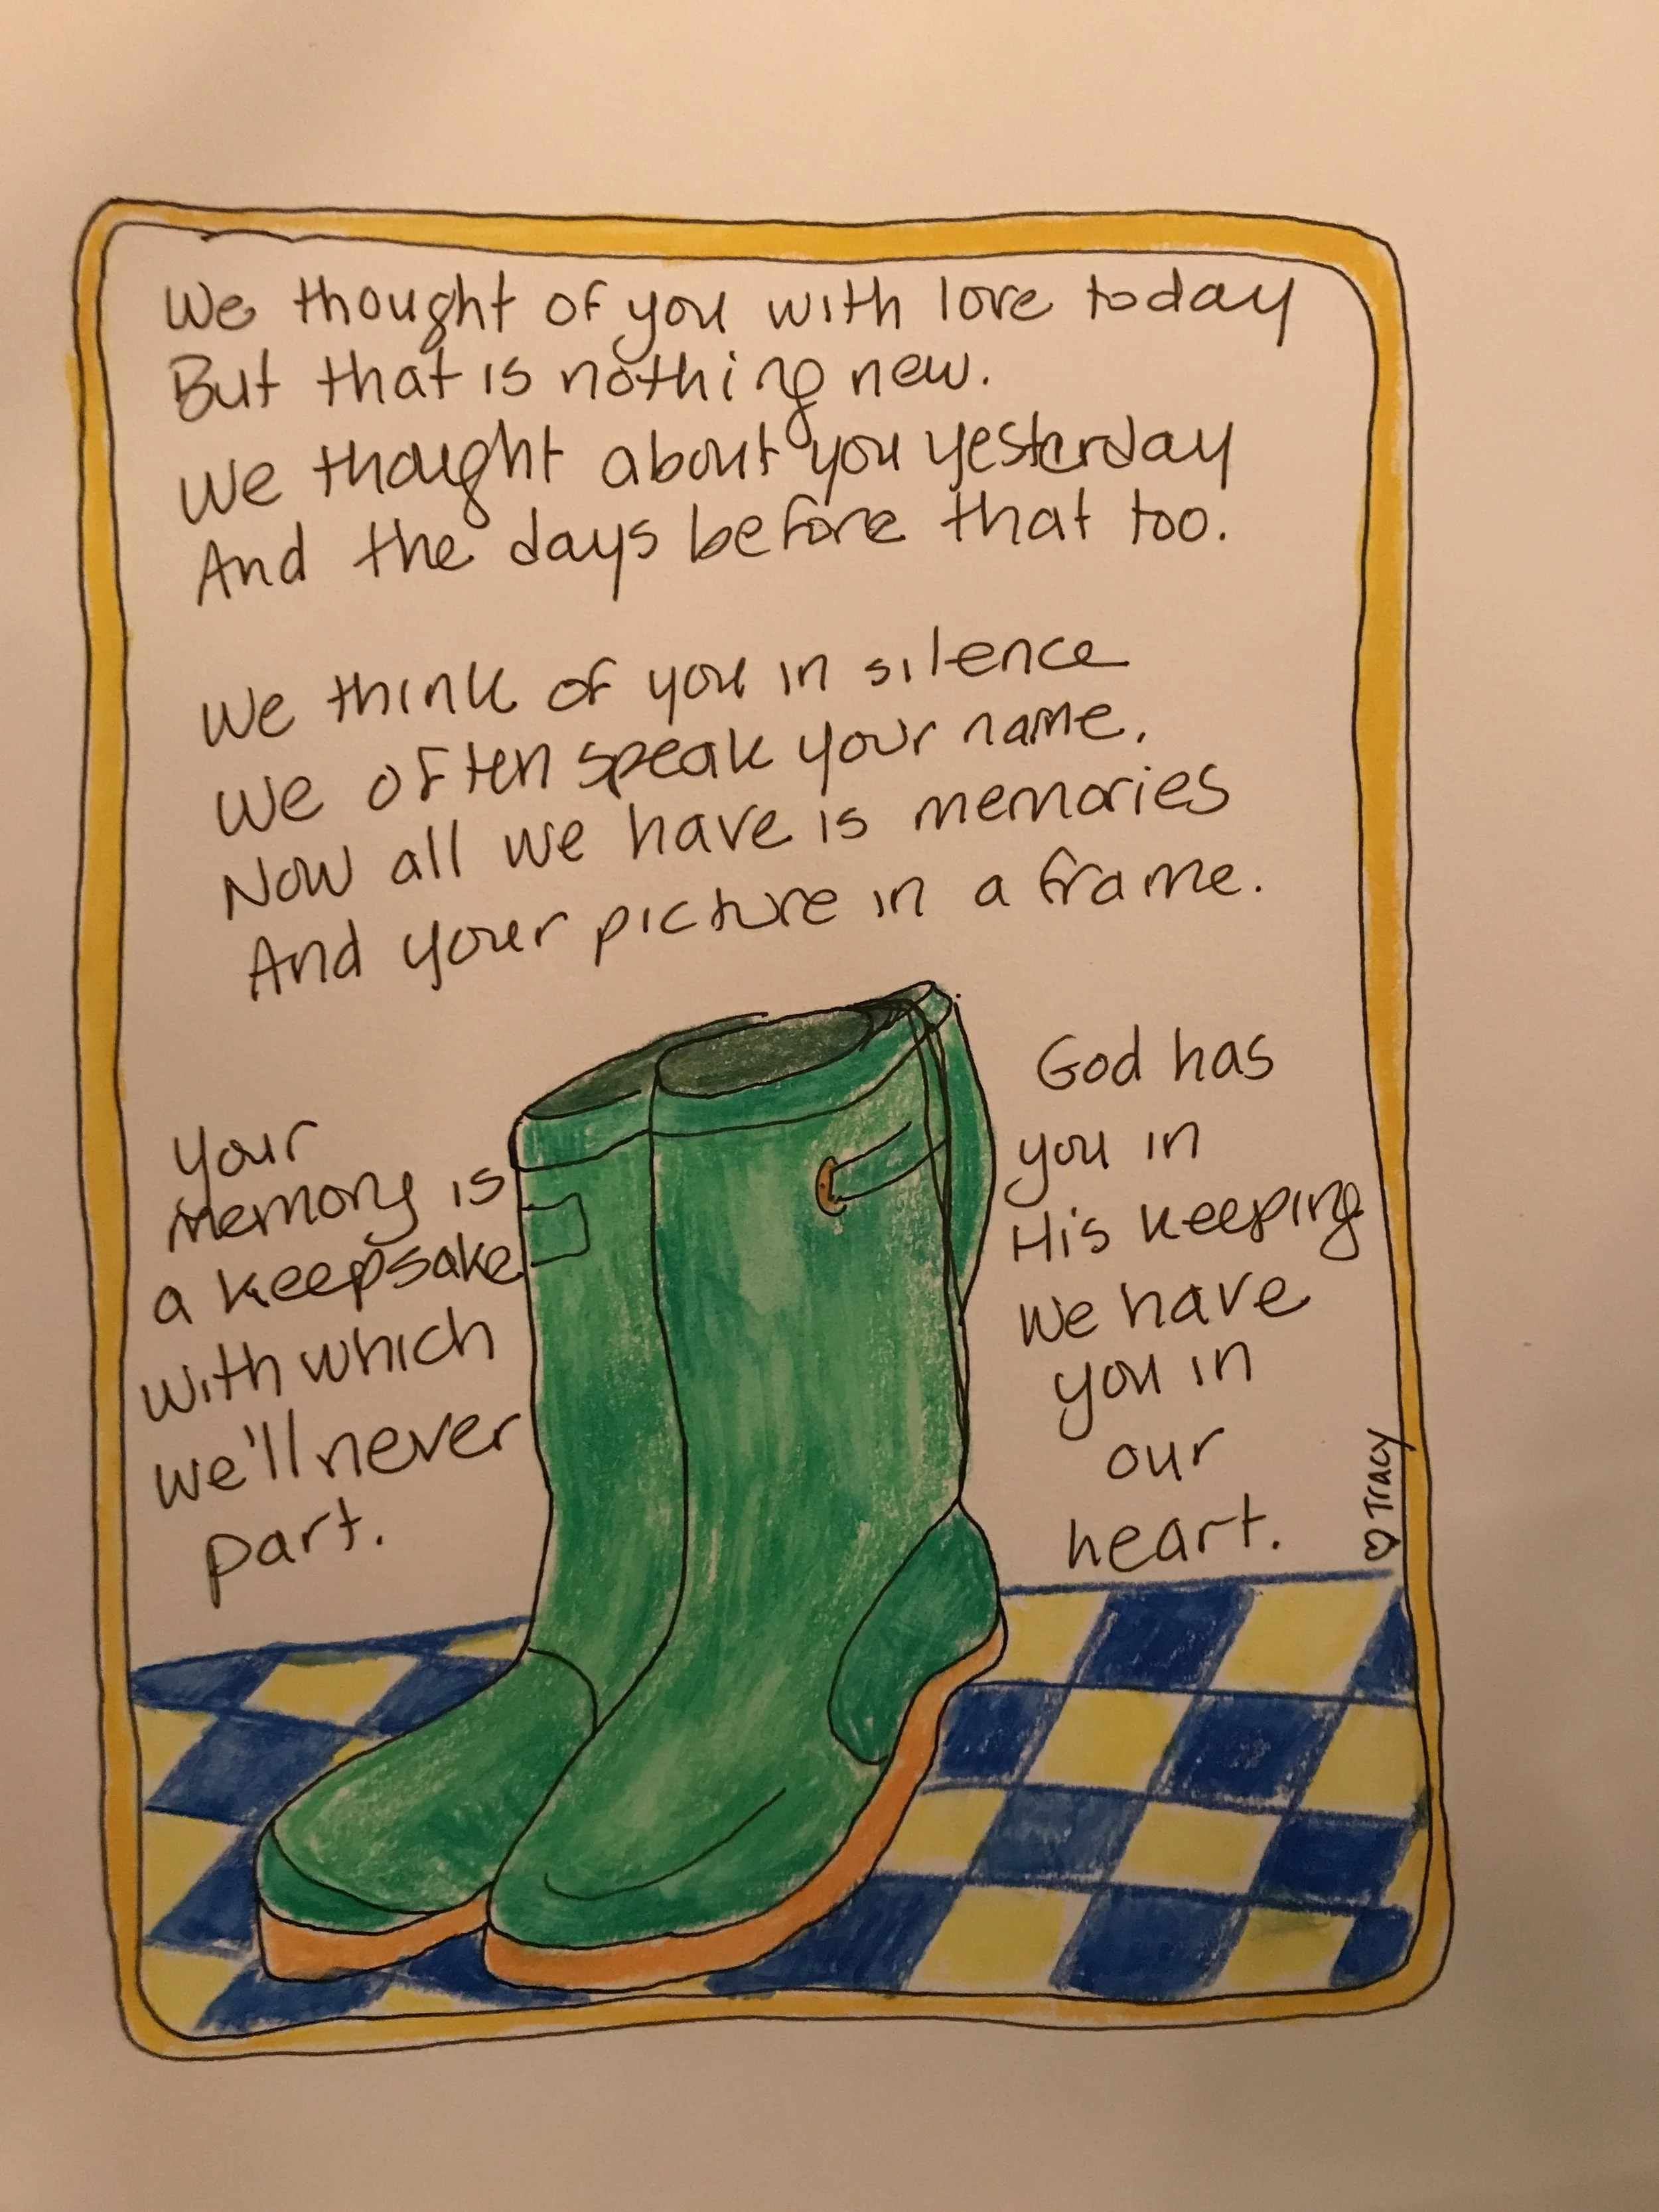 We thought of you with love today
But that is nothing new.
We thought about you yesterday
And the days before that too.
We think of you in silence
We often speak your name.
Now all we have is memories
And your picture in a frame.
your
memory is
a keepsake
with which
we'll never
part.
God has
you in
His keeping
We have
you in
our
heart.
♡ Tracy